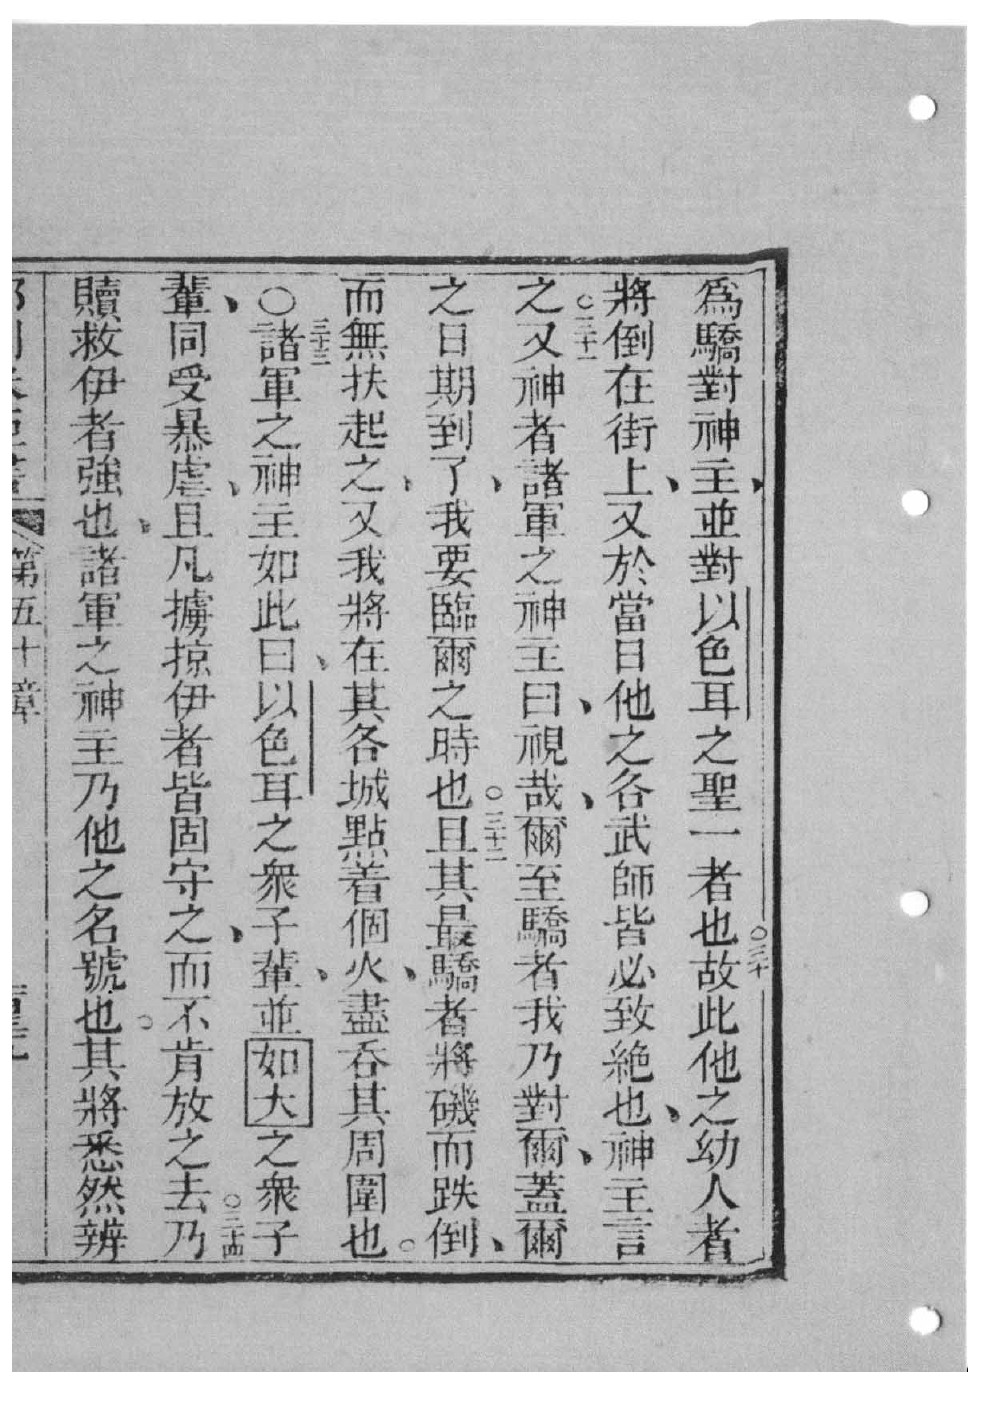 爲驕對神主、並對以色耳之聖一者也○三十故此他之幼人者
將倒在街上、又於當日他之各武師皆必致絶也、神主言
之○三十一又神者諸軍之神主曰、視哉、爾至驕者我乃對爾、蓋爾
之日期到了、我要臨爾之時也○三十二且其最驕者將磯而跌倒、
而無扶起之、又我將在其各城點着個火、盡吞其周圍也。
○三十三諸軍之神主如此曰、以色耳之衆子輩、並如大之衆子
輩、同受暴虐、且凡擄掠伊者皆固守之、而不肯放之去○三十四乃
贖救伊者強也、諸軍之神主乃他之名號也。其將悉然辨
第五十章